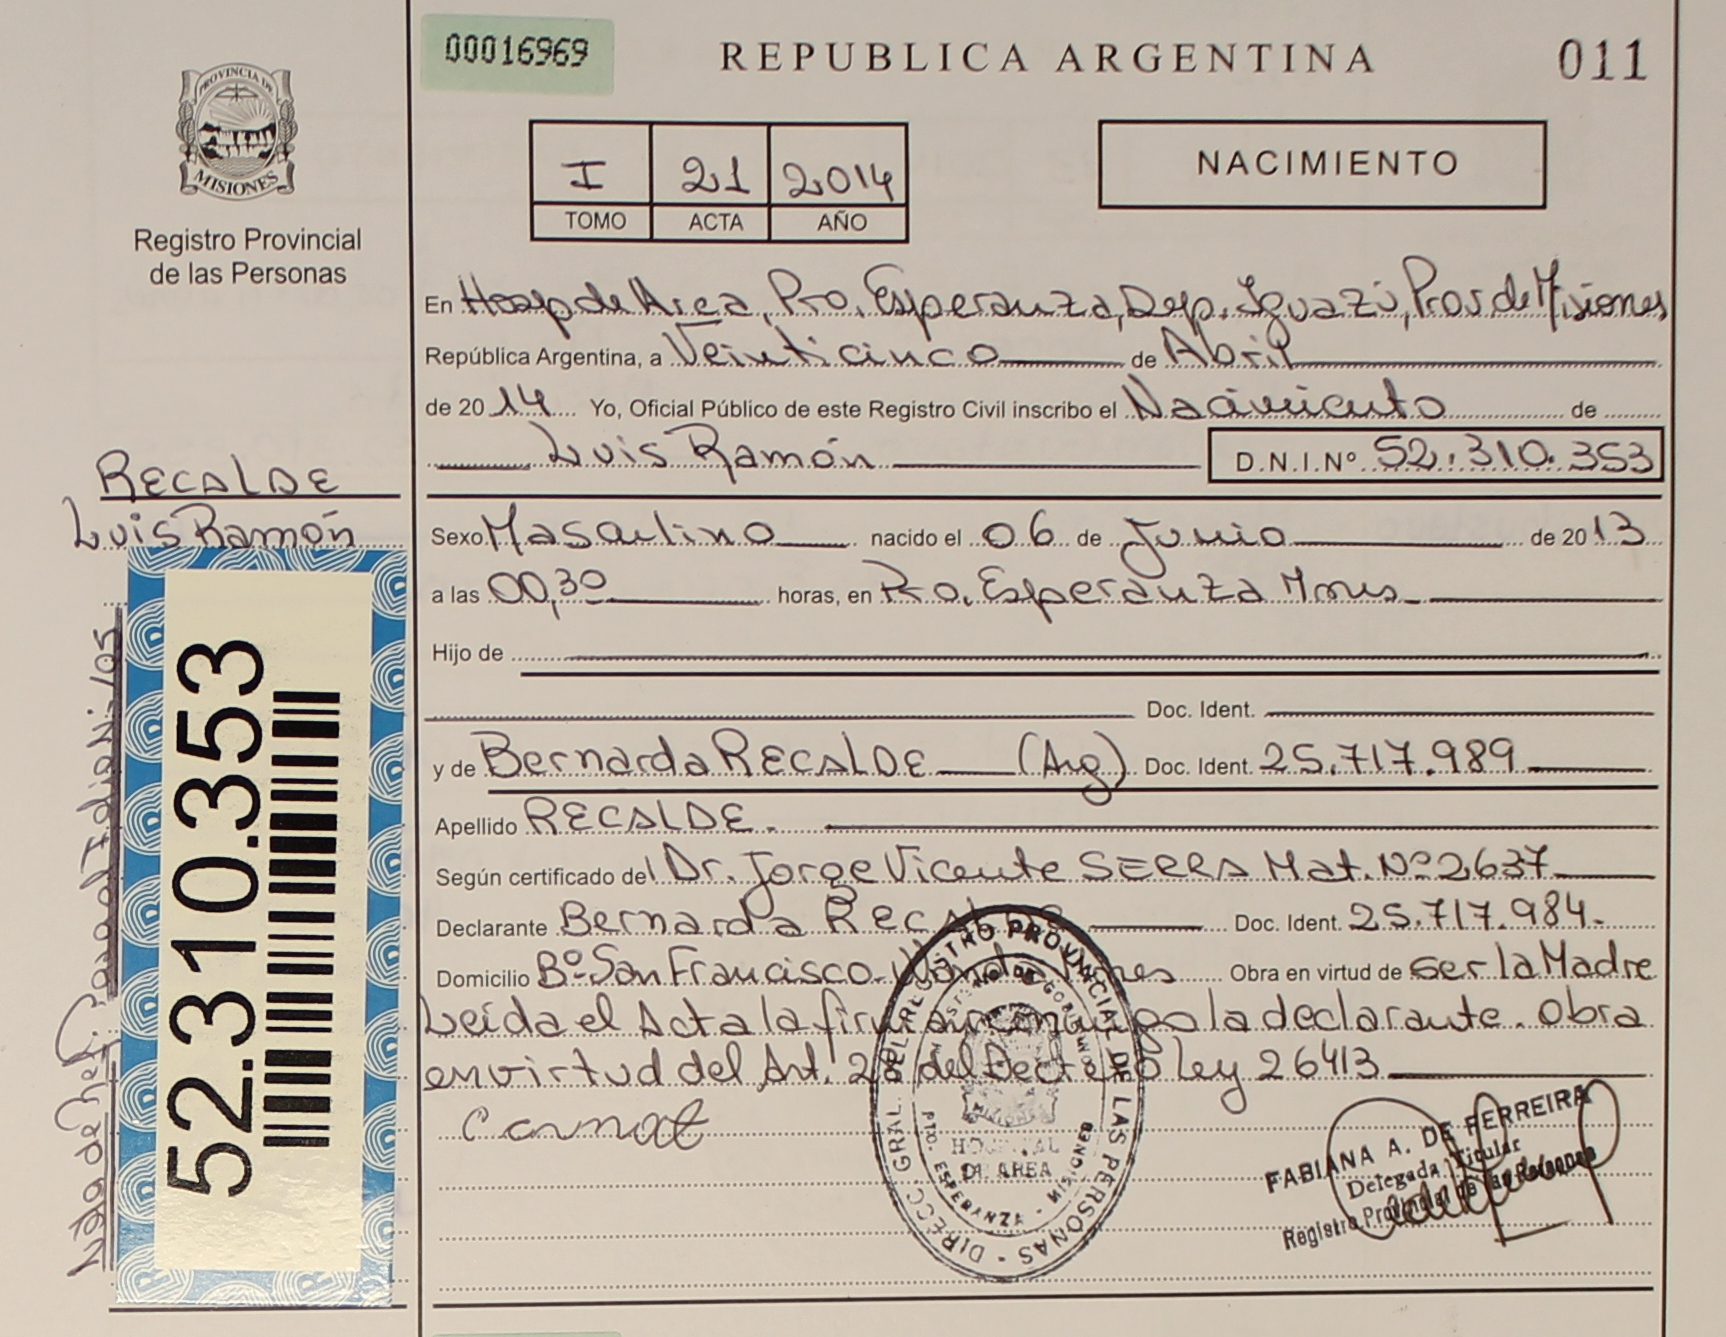 00016969
REPUBLICA ARGENTINA
011
PROVINCIA DE
MISIONES
Registro Provincial
de las Personas
I 21 2014
TOMO ACTA AÑO
NACIMIENTO
En Hosp de Area, Pto. Esperanza, Dep. Iguazú, Prov de Misiones
República Argentina, a Veinticinco de Abril
de 2014 Yo, Oficial Público de este Registro Civil inscribo el Nacimiento de
Luis Ramón D.N.I.Nº 52.310.353
RECALDE
Luis Ramón
52.310.353
Sexo Masculino nacido el 06 de Junio de 2013
a las 00,30 horas, en Pto. Esperanza Mnes
Hijo de
Doc. Ident.
y de Bernarda RECALDE (Arg) Doc. Ident. 25.717.989
Apellido RECALDE.
Según certificado del Dr. Jorge Vicente SERRA Mat. Nº 2637
Declarante Bernarda Recalde Doc. Ident. 25.717.984.
Domicilio Bº San Francisco Mnes Obra en virtud de ser la Madre
Leída el Acta la firma conmigo la declarante. Obra
en virtud del Art. 28 del Decreto Ley 26413
DIRECC. GRAL. DEL REGISTRO PROVINCIAL DE LAS PERSONAS
MINISTERIO DE GOBIERNO
HOSPITAL
DE AREA
PTO. ESPERANZA - MISIONES
FABIANA A. DE FERREIRA
Delegada Titular
Registro Provincial de las Personas